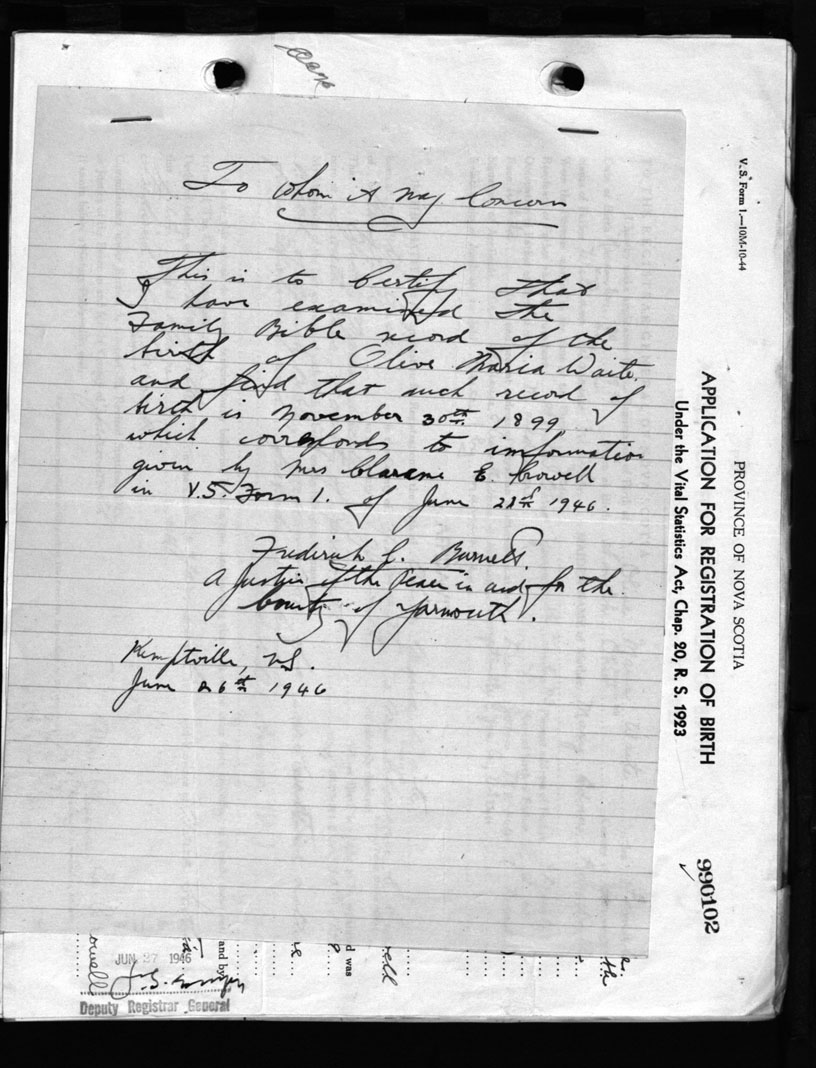 To Whom it May Concern
This is to Certify that
I have examined the
Family Bible record of the
birth of Olive Maria Waite.
and find that such record of
birth is November 30th 1899
which corresponds to information
given by Mrs Clarence E. Crowell
in V.S. Form 1. of June 21st 1946.
Frederick C.
A Justice of the Peace in and for the
County of Yarmouth.
Kemptville, N.S.
June 26th 1946
V. S. Form 1.—10M-10-44
PROVINCE OF NOVA SCOTIA
APPLICATION FOR REGISTRATION OF BIRTH
Under the Vital Statistics Act, Chap. 20, R. S. 1923
990102
the
well
d was
and by
owell
JUN 27 1946
Deputy Registrar General